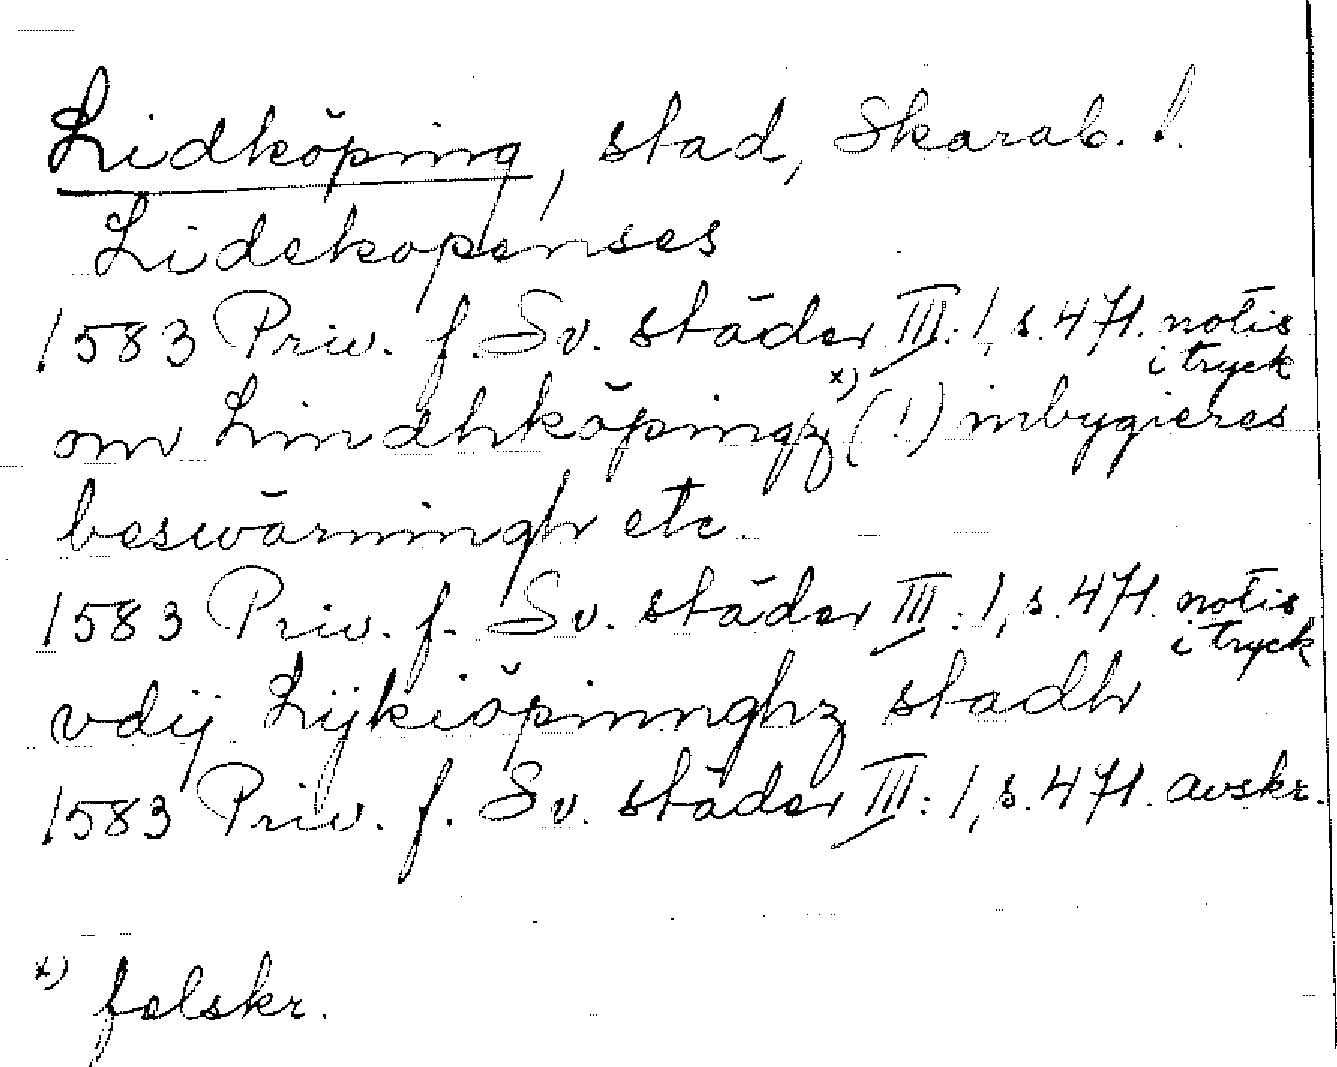 Lidköping, stad, Skarab. l.
Lidekopenses
1583 Priv. f. Sv. städer III:1, s. 471. notis i tryck
om Lindhköpingz x) (!) inbygieres
beswäringh etc.
1583 Priv. f. Sv. städer III:1, s. 471. notis i tryck
vdij Lijkiöpinnghz stadh
1583 Priv. f. Sv. städer III:1, s. 471. avskr.
x) felskr.